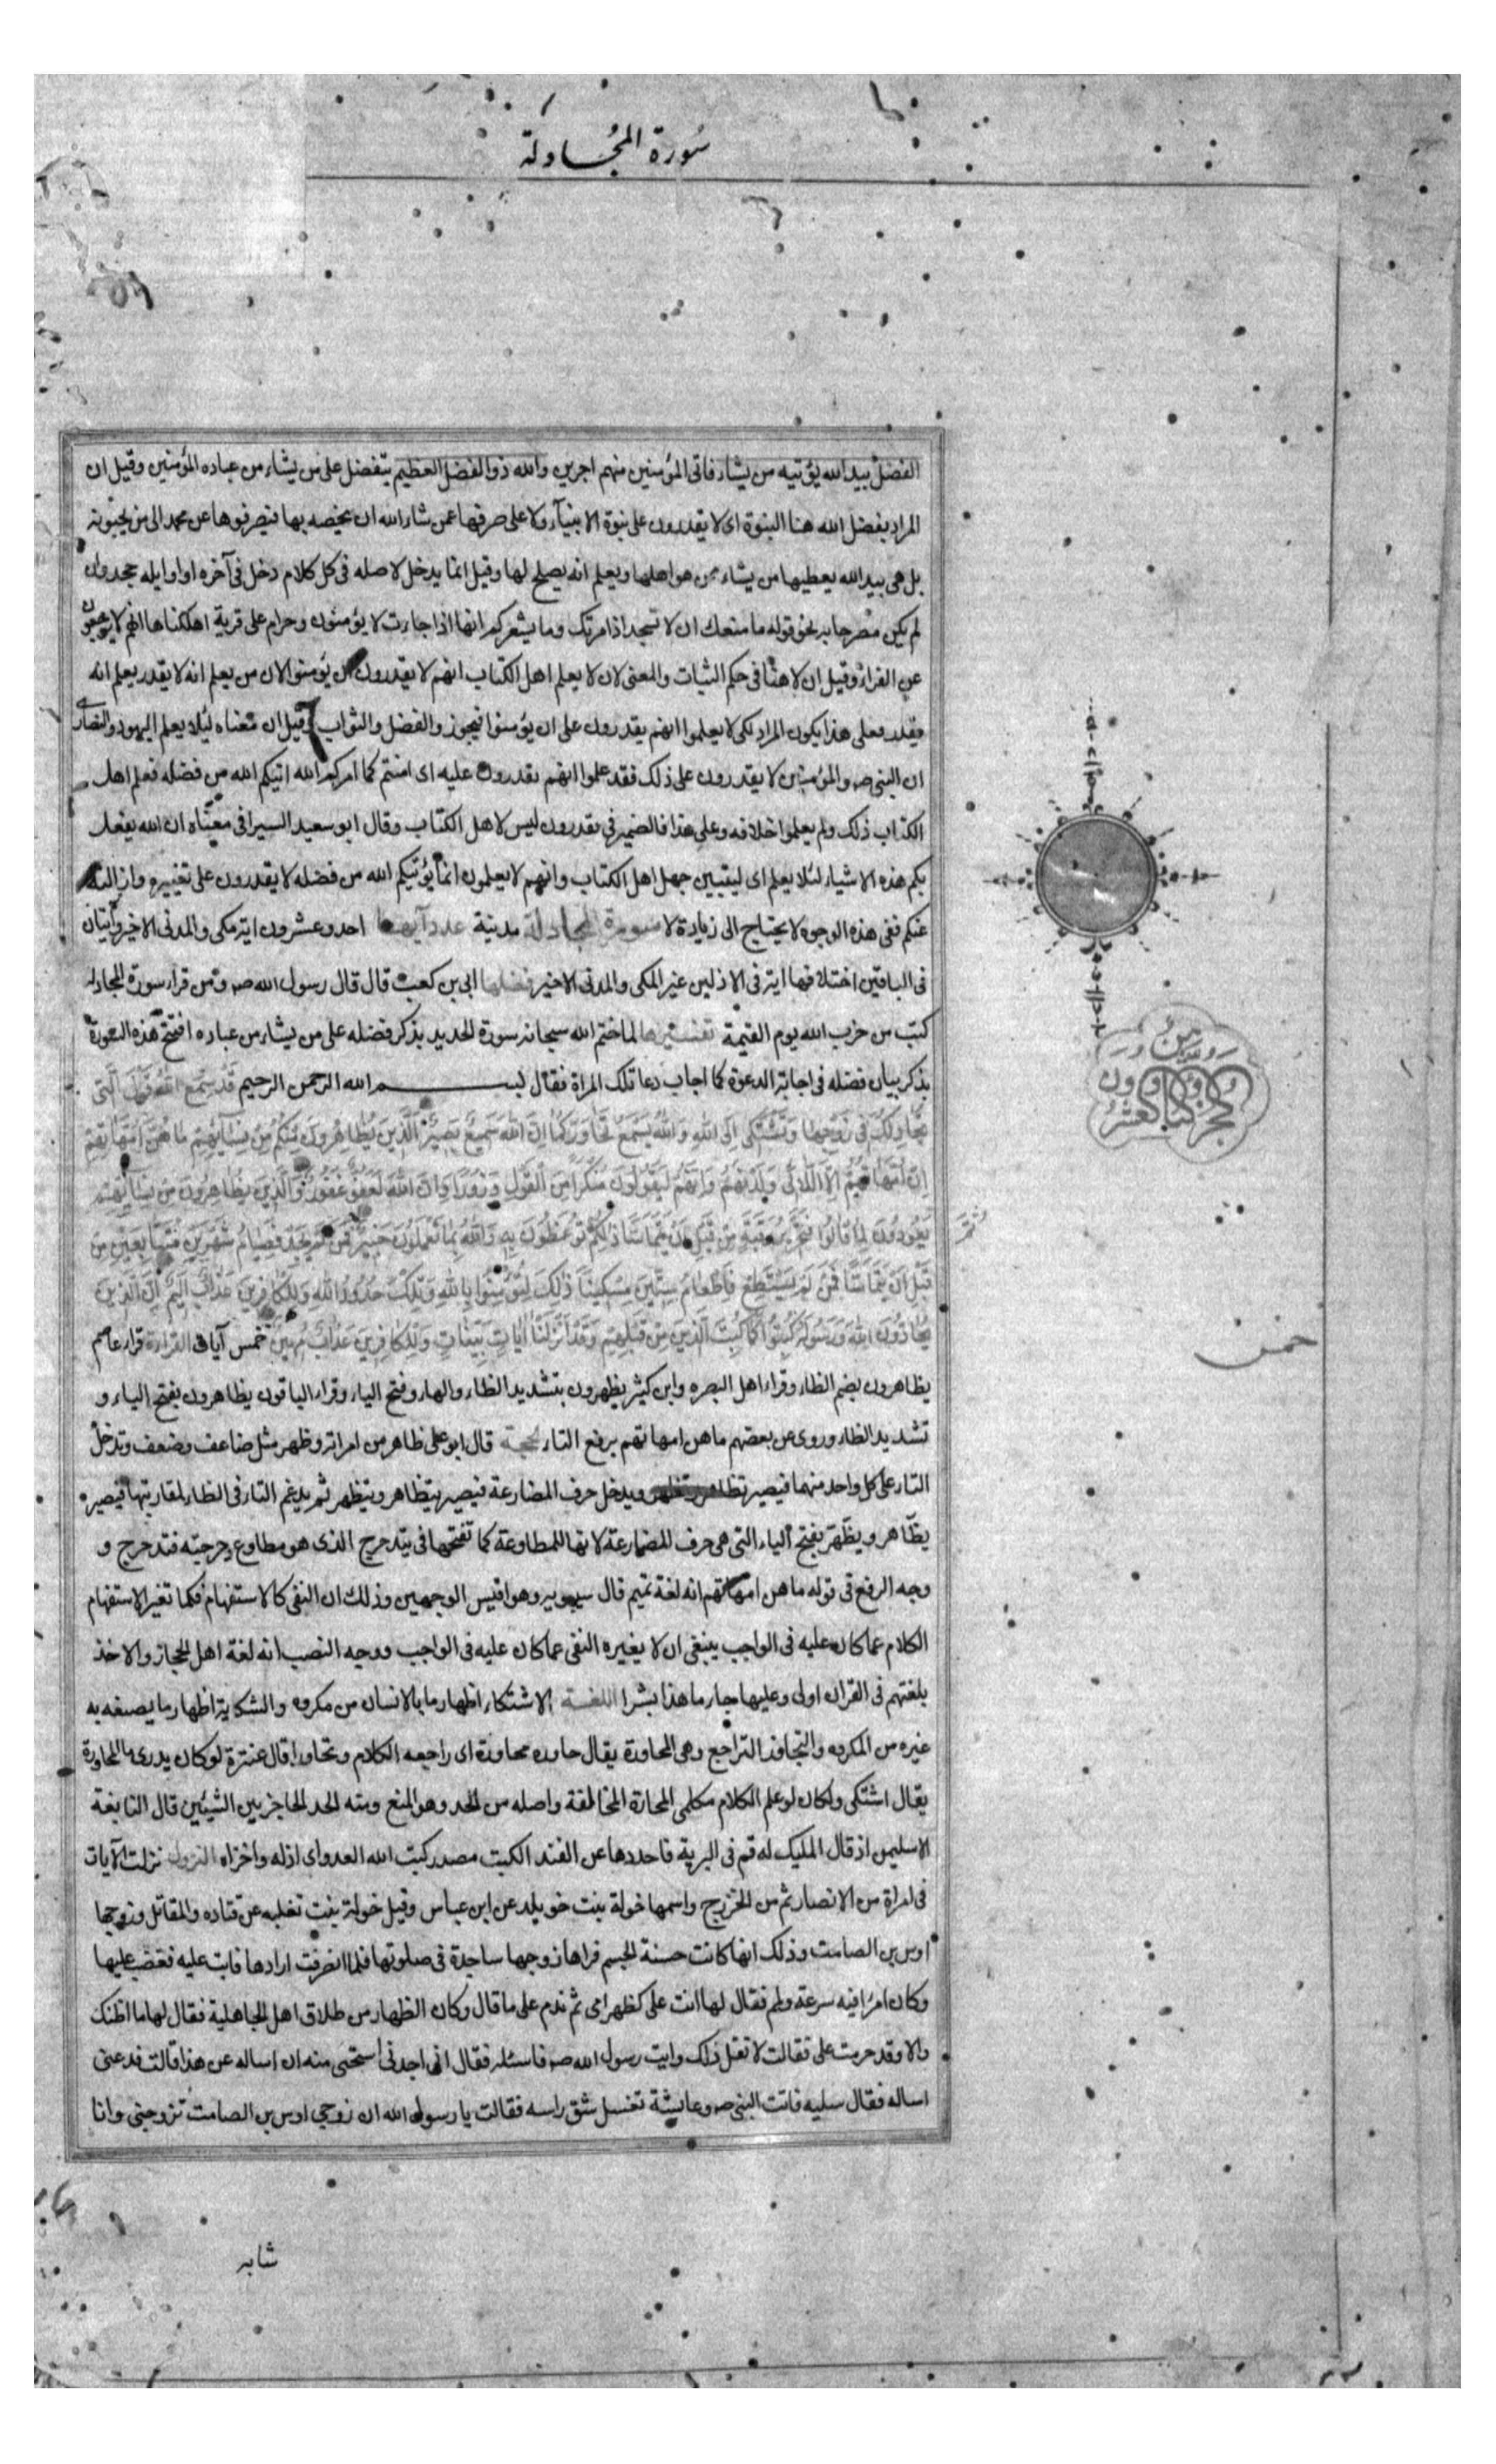 سُورة المُجادلة
الفضل بيد الله يؤتيه من يشاء فاتى المؤمنين منهم اجرين والله ذو الفضل العظيم يتفضل على من يشاء من عباده المؤمنين وقيل ان
المراد بفضل الله هنا النبوة اى لا يقدرون على نبوة الانبيآء ولا على صرفها عمن شاء الله ان يخصه بها فيصرفوها عن محمد الى من يحبونه
بل هى بيد الله يعطيها من يشاء ممن هو اهلها ويعلم انه يصلح لها وقيل انما يدخل لا صله فى كل كلام دخل فى آخره او اوايله جحد وان
لم يكن مصرحا به نحو قوله ما منعك ان لا تسجد اذ امرتك وما يشعركم انها اذا جاءت لا يؤمنون وحرام على قرية اهلكناها انهم لا يرجعون
عن الفراء وقيل ان لا هنا فى حكم الثبات والمعنى لان لا يعلم اهل الكتاب انهم لا يقدرون ان يؤمنوا لان من يعلم انه لا يقدر يعلم انه
يقدر فعلى هذا يكون المراد لكى لا يعلموا انهم يقدرون على ان يؤمنوا فيجوز والفضل والثواب وقيل ان معناه ليلا يعلم اليهود والنصارى
ان النبى صہ والمؤمنين لا يقدرون على ذلك فقد علموا انهم يقدرون عليه اى امنتم كما امركم الله اتيكم الله من فضله فعلم اهل
الكتاب ذلك ولم يعلموا خلافه وعلى هذا فالضمير فى يقدرون ليس لاهل الكتاب وقال ابو سعيد السيرافى معناه ان الله يفعل
بكم هذه الاشياء لئلا يعلم اى ليتبين جهل اهل الكتاب وانهم لا يعلمون انما يؤتيكم الله من فضله لا يقدرون على تغييره وازالته
عنكم ففى هذه الوجوه لا يحتاج الى زيادة لا سورة المجادلة مدنية عدد آيها احد وعشرون اية مكى والمدنى الاخير وآيتان
فى الباقين اختلافها اية فى الاذلين غير المكى والمدنى الاخير فضلها ابى بن كعب قال قال رسول الله صہ ومن قراء سورة المجادله
كتب من حزب الله يوم القيمة تفسيرها لما ختم الله سبحانه سورة الحديد بذكر فضله على من يشاء من عباده افتتح هذه السورة
بذكر بيان فضله فى اجابة الدعوة كما اجاب دعا تلك المراة فقال بسم الله الرحمن الرحيم قَدْ سَمِعَ اللهُ قَوْلَ الَّتى
تُجَادِلُكَ فى زَوْجِهَا وَتَشْتَكى اِلَى اللهِ وَاللهُ يَسْمَعُ تَحَاوُرَكُمَا اِنَّ اللهَ سَمِيعٌ بَصِيرٌ اَلَّذِينَ يُظَاهِرُونَ مِنْكُمْ مِنْ نِسَآئِهِمْ مَا هُنَّ اُمَّهَاتِهِمْ
اِنْ اُمَّهَاتُهُمْ اِلَّا اللَّائى وَلَدْنَهُمْ وَاِنَّهُمْ لَيَقُولُونَ مُنْكَرًا مِنَ الْقَوْلِ وَزُورًا وَاِنَّ اللهَ لَعَفُوٌّ غَفُورٌ وَالَّذِينَ يُظَاهِرُونَ مِنْ نِسَآئِهِمْ
ثُمَّ
يَعُودُونَ لِمَا قَالُوا فَتَحْرِيرُ رَقَبَةٍ مِنْ قَبْلِ اَنْ يَتَمَاسَّا ذَلِكُمْ تُوعَظُونَ بِهِ وَاللهُ بِمَا تَعْمَلُونَ خَبِيرٌ فَمَنْ لَمْ يَجِدْ فَصِيَامُ شَهْرَيْنِ مُتَتَابِعَيْنِ مِنْ
قَبْلِ اَنْ يَتَمَاسَّا فَمَنْ لَمْ يَسْتَطِعْ فَاِطْعَامُ سِتِّينَ مِسْكِينًا ذَلِكَ لِتُؤْمِنُوا بِاللهِ وَتِلْكَ حُدُودُ اللهِ وَلِلْكَافِرِينَ عَذَابٌ اَلِيمٌ اِنَّ الَّذِينَ
يُحَادُّونَ اللهَ وَرَسُولَهُ كُبِتُوا كَمَا كُبِتَ الَّذِينَ مِنْ قَبْلِهِمْ وَقَدْ اَنْزَلْنَا اٰيَاتٍ بَيِّنَاتٍ وَلِلْكَافِرِينَ عَذَابٌ مُهِينٌ خمس آيات القراءة قراء عاصم
خمس
يظاهرون بضم الظاء وقراء اهل البصره وابن كثير يظهرون بتشديد الظاء والهاء وفتح الياء وقراء الباقون يظاهرون بفتح الياء و
تشديد الظاء وروى عن بعضهم ما هن امهاتهم برفع التاء الحجة قال ابو على ظاهر من امراته وظهر مثل ضاعف وضعف وتدخل
التاء على كل واحد منهما فيصير تظاهر وتظهر ويدخل حرف المضارعة فيصير يتظاهر ويتظهر ثم يدغم التاء فى الظاء لمقاربتها فيصير
يظّاهر ويظّهر بفتح الياء التى هى حرف للمضارعة لانها للمطاوعة كما تفتحها فى يتدحرج الذى هو مطاوع دحرجته فتدحرج و
وجه الرفع فى قوله ما هن امهاتهم انه لغة تميم قال سيبويه وهو اقيس الوجهين وذلك ان النفى كالاستفهام فكما تغير الاستفهام
الكلام عما كان عليه فى الواجب ينبغى ان لا يغيره النفى عما كان عليه فى الواجب ووجه النصب انه لغة اهل الحجاز والاخذ
بلغتهم فى القران اولى وعليها جاء ما هذا بشرا اللغة الاشتكاء اظهار ما بالانسان من مكروه والشكاية اظهار ما يصنعه به
غيره من المكروه والتحاور التراجع وهى المحاورة يقال حاوره محاورة اى راجعه الكلام وتحاورا قال عنترة لو كان يدرى ما المحاورة
يقال اشتكى ولكان لو علم الكلام مكلمى المحادة المخالفة واصله من الحد وهو المنع ومنه الحد الحاجز بين الشيئين قال النابغة
الا سليمن اذ قال المليك له قم فى البرية فاحددها عن الفند الكبت مصدر كبت الله العدو اى اذله واخزاه النزول نزلت الآيات
فى امراة من الانصار ثم من الخزرج واسمها خولة بنت خويلد عن ابن عباس وقيل خولة بنت ثعلبه عن قتاده والمقاتل وزوجها
اوس بن الصامت وذلك انها كانت حسنة الجسم فراها زوجها ساجدة فى صلوتها فلما انصرفت ارادها فابت عليه فغضب عليها
وكان امرُا فيه سرعة ولم فقال لها انت على كظهر امى ثم ندم على ما قال وكان الظهار من طلاق اهل الجاهلية فقال لها ما اظنك
والا وقد حرمت على فقالت لا تقل ذلك وايت رسول الله صہ فاسئله فقال انى اجدنى استحيى منه ان اساله عن هذا قالت فدعنى
اساله فقال سليه فاتت النبى صہ وعايشة تغسل شق راسه فقالت يا رسول الله ان زوجى اوس بن الصامت تزوجنى وانا
شابه